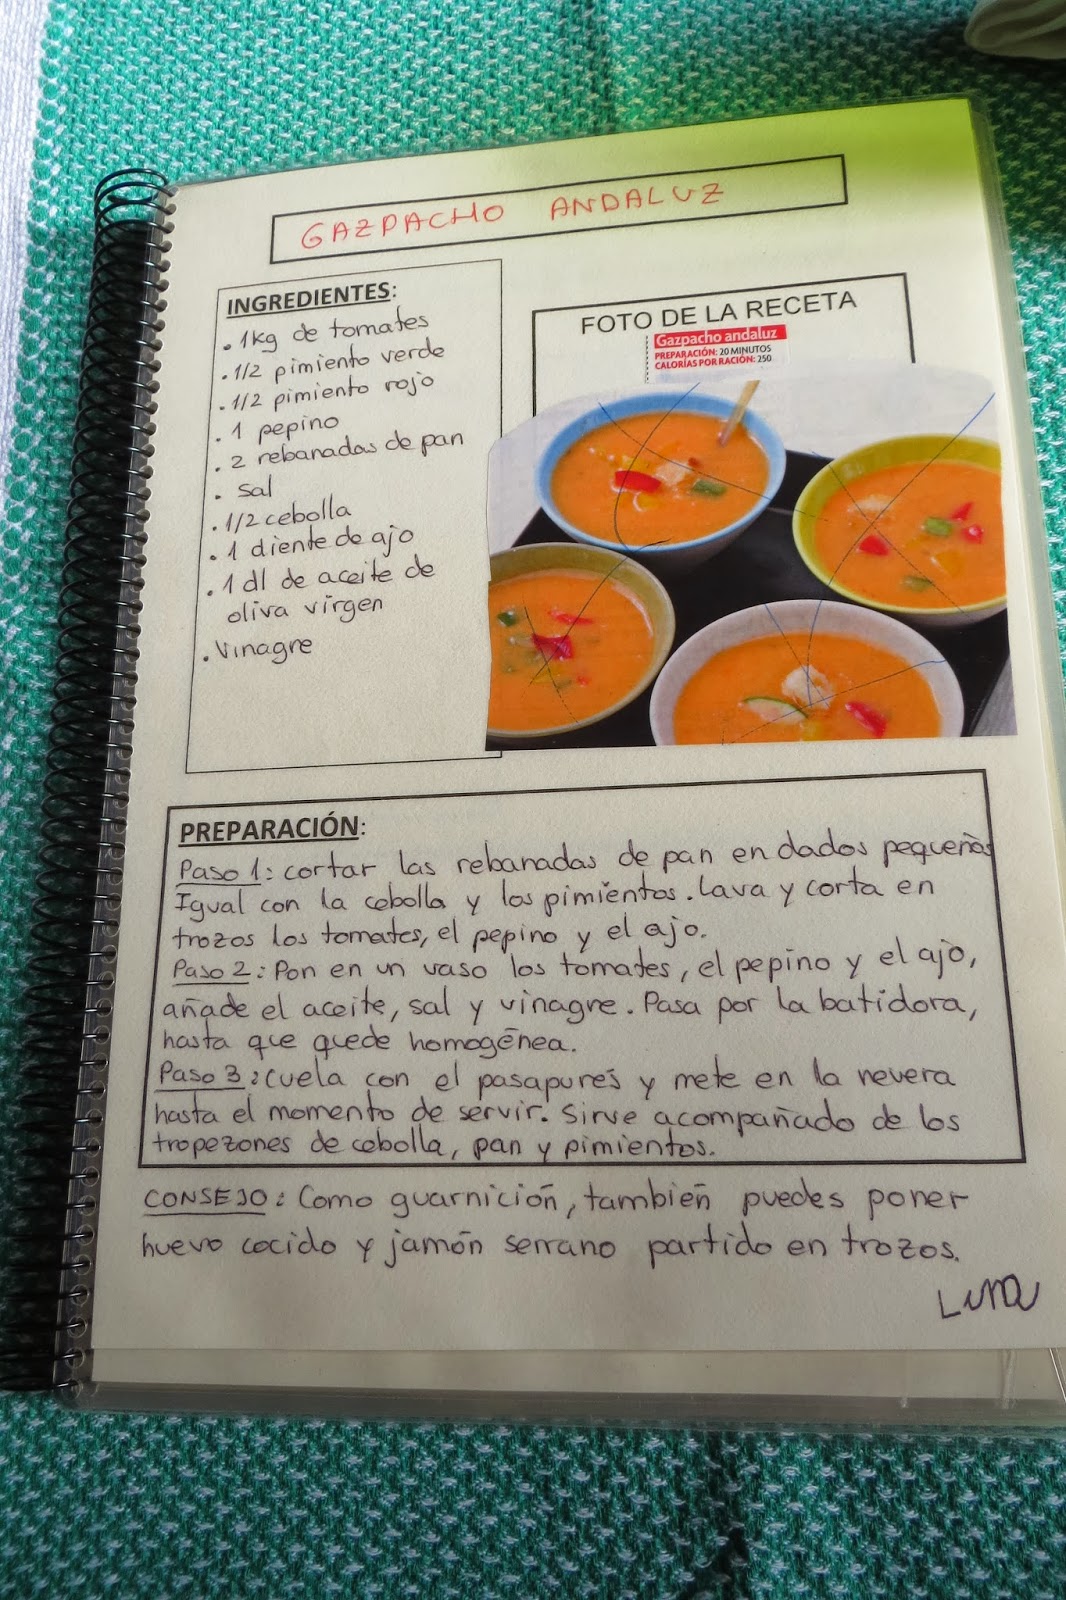 GAZPACHO ANDALUZ
INGREDIENTES:
. 1kg de tomates
. 1/2 pimiento verde
. 1/2 pimiento rojo
. 1 pepino
. 2 rebanadas de pan
. sal
. 1/2 cebolla
. 1 diente de ajo
. 1 dl de aceite de
oliva virgen
. vinagre
FOTO DE LA RECETA
Gazpacho andaluz
PREPARACIÓN: 20 MINUTOS
CALORÍAS POR RACIÓN: 250
PREPARACIÓN:
Paso 1: cortar las rebanadas de pan en dados pequeños
Igual con la cebolla y los pimientos. Lava y corta en
trozos los tomates, el pepino y el ajo.
Paso 2: Pon en un vaso los tomates, el pepino y el ajo,
añade el aceite, sal y vinagre. Pasa por la batidora,
hasta que quede homogénea.
Paso 3: Cuela con el pasapurés y mete en la nevera
hasta el momento de servir. Sirve acompañado de los
tropezones de cebolla, pan y pimientos.
CONSEJO: Como guarnición, también puedes poner
huevo cocido y jamón serrano partido en trozos.
Luna